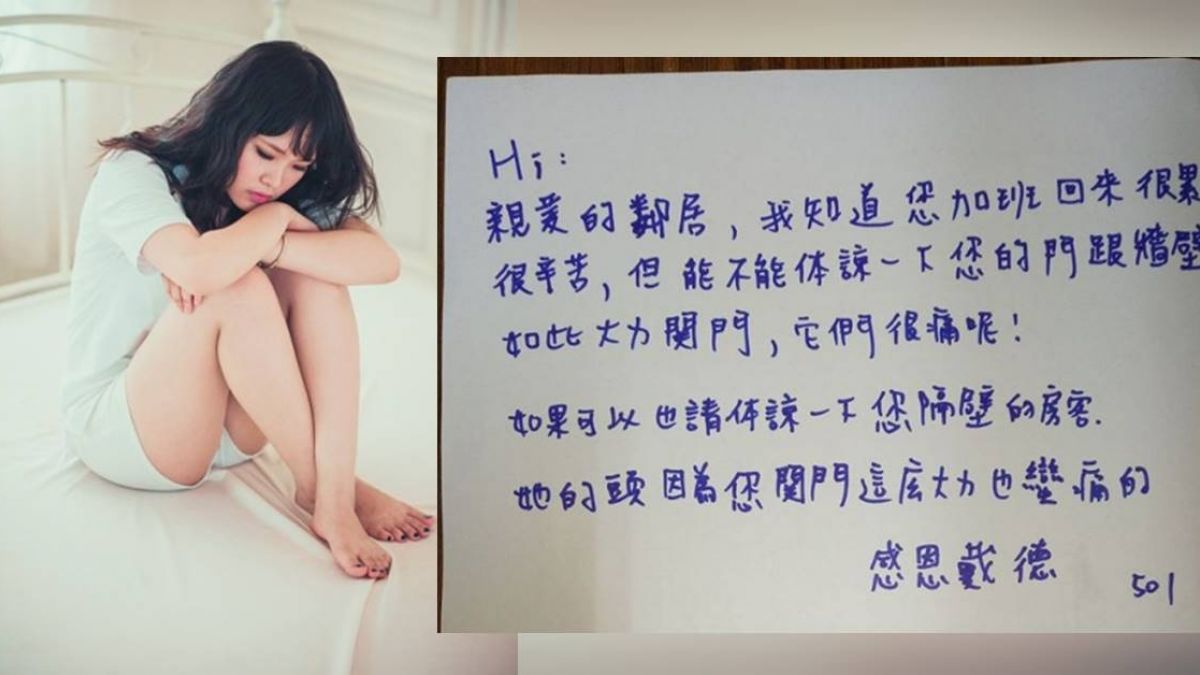 Hi：
親愛的鄰居，我知道您加班回來很累
很辛苦，但能不能体諒一下您的門跟牆壁
如此大力関門，它們很痛呢！
如果可以也請体諒一下您隔壁的房客.
她的頭因為您関門這麼大力也蠻痛的
感恩戴德
501